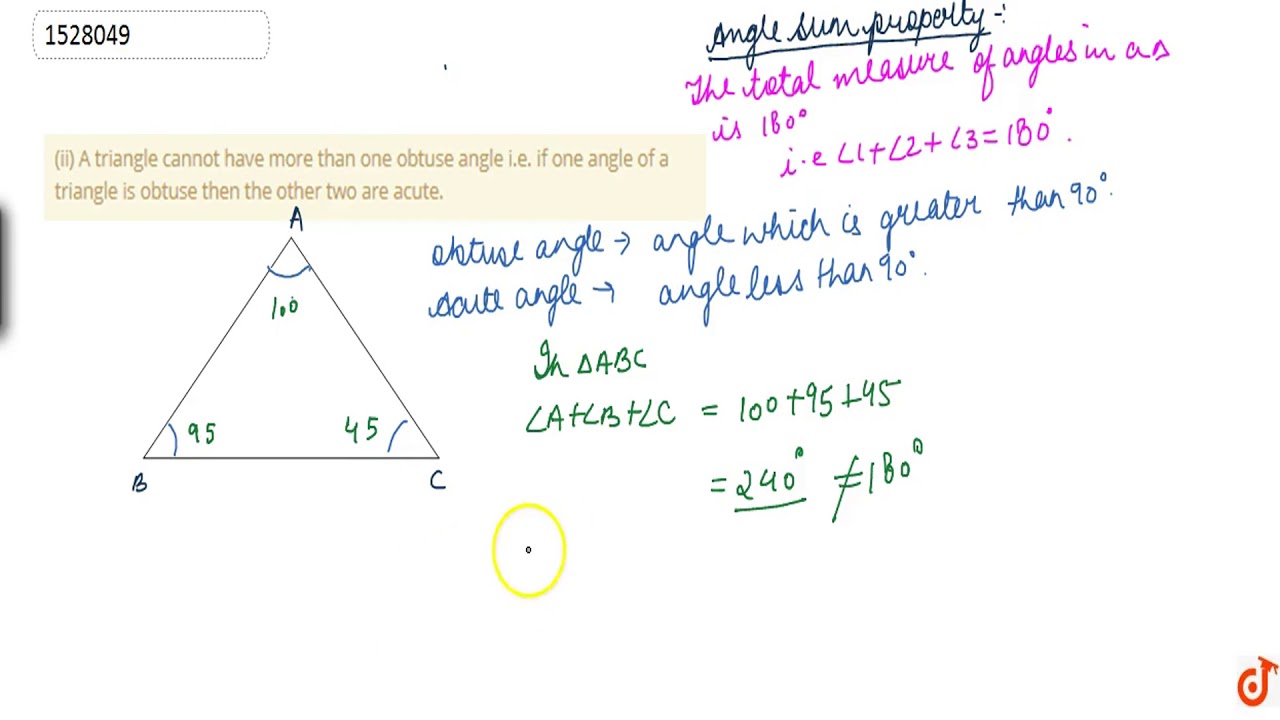 1528049
Angle sum property :-
The total measure of angles in a Δ
is 180°
i.e ∠1+∠2+∠3=180°.
(ii) A triangle cannot have more than one obtuse angle i.e. if one angle of a
triangle is obtuse then the other two are acute.
obtuse angle → angle which is greater than 90°.
Acute angle → angle less than 90°.
A
100
95
45
B
C
In ΔABC
∠A+∠B+∠C = 100+95+45
= 240° ≠180°